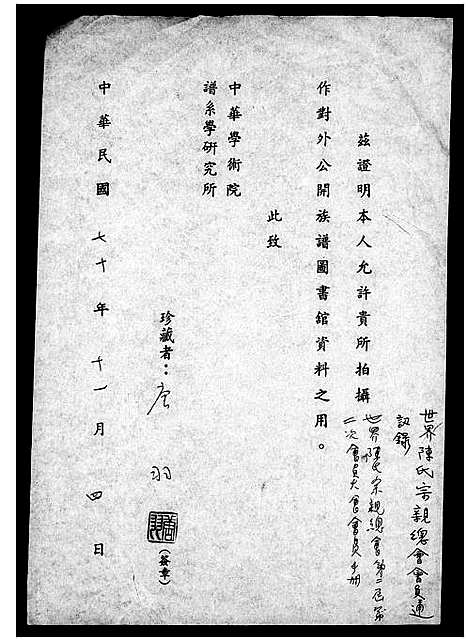 世界陳氏宗親總會會員通
訊錄
世界陳氏宗親總會第二屆第
二次會員大會會員手册
茲證明本人允許貴所拍攝
作對外公開族譜圖書舘資料之用。
此致
中華學術院
譜系學研究所
珍藏者：唐羽
(簽章)
中華民國七十年十一月四日